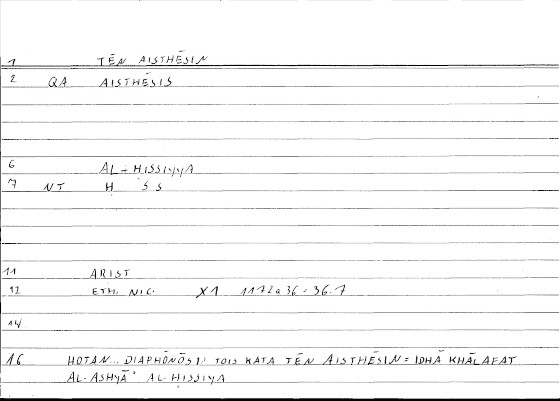 1 TĒN AISTHĒSIN
2 QA AISTHĒSIS
6 AL-ḤISSIYYA
7 NT Ḥ S S
11 ARIST
12 ETH. NIC. X1 1172a36 = 36.7
14
16 HOTAN... DIAPHŌNŌSI: TOIS KATA TĒN AISTHĒSIN = IDHĀ KHĀLAFAT
AL-ASHYĀʾ AL-ḤISSIYA